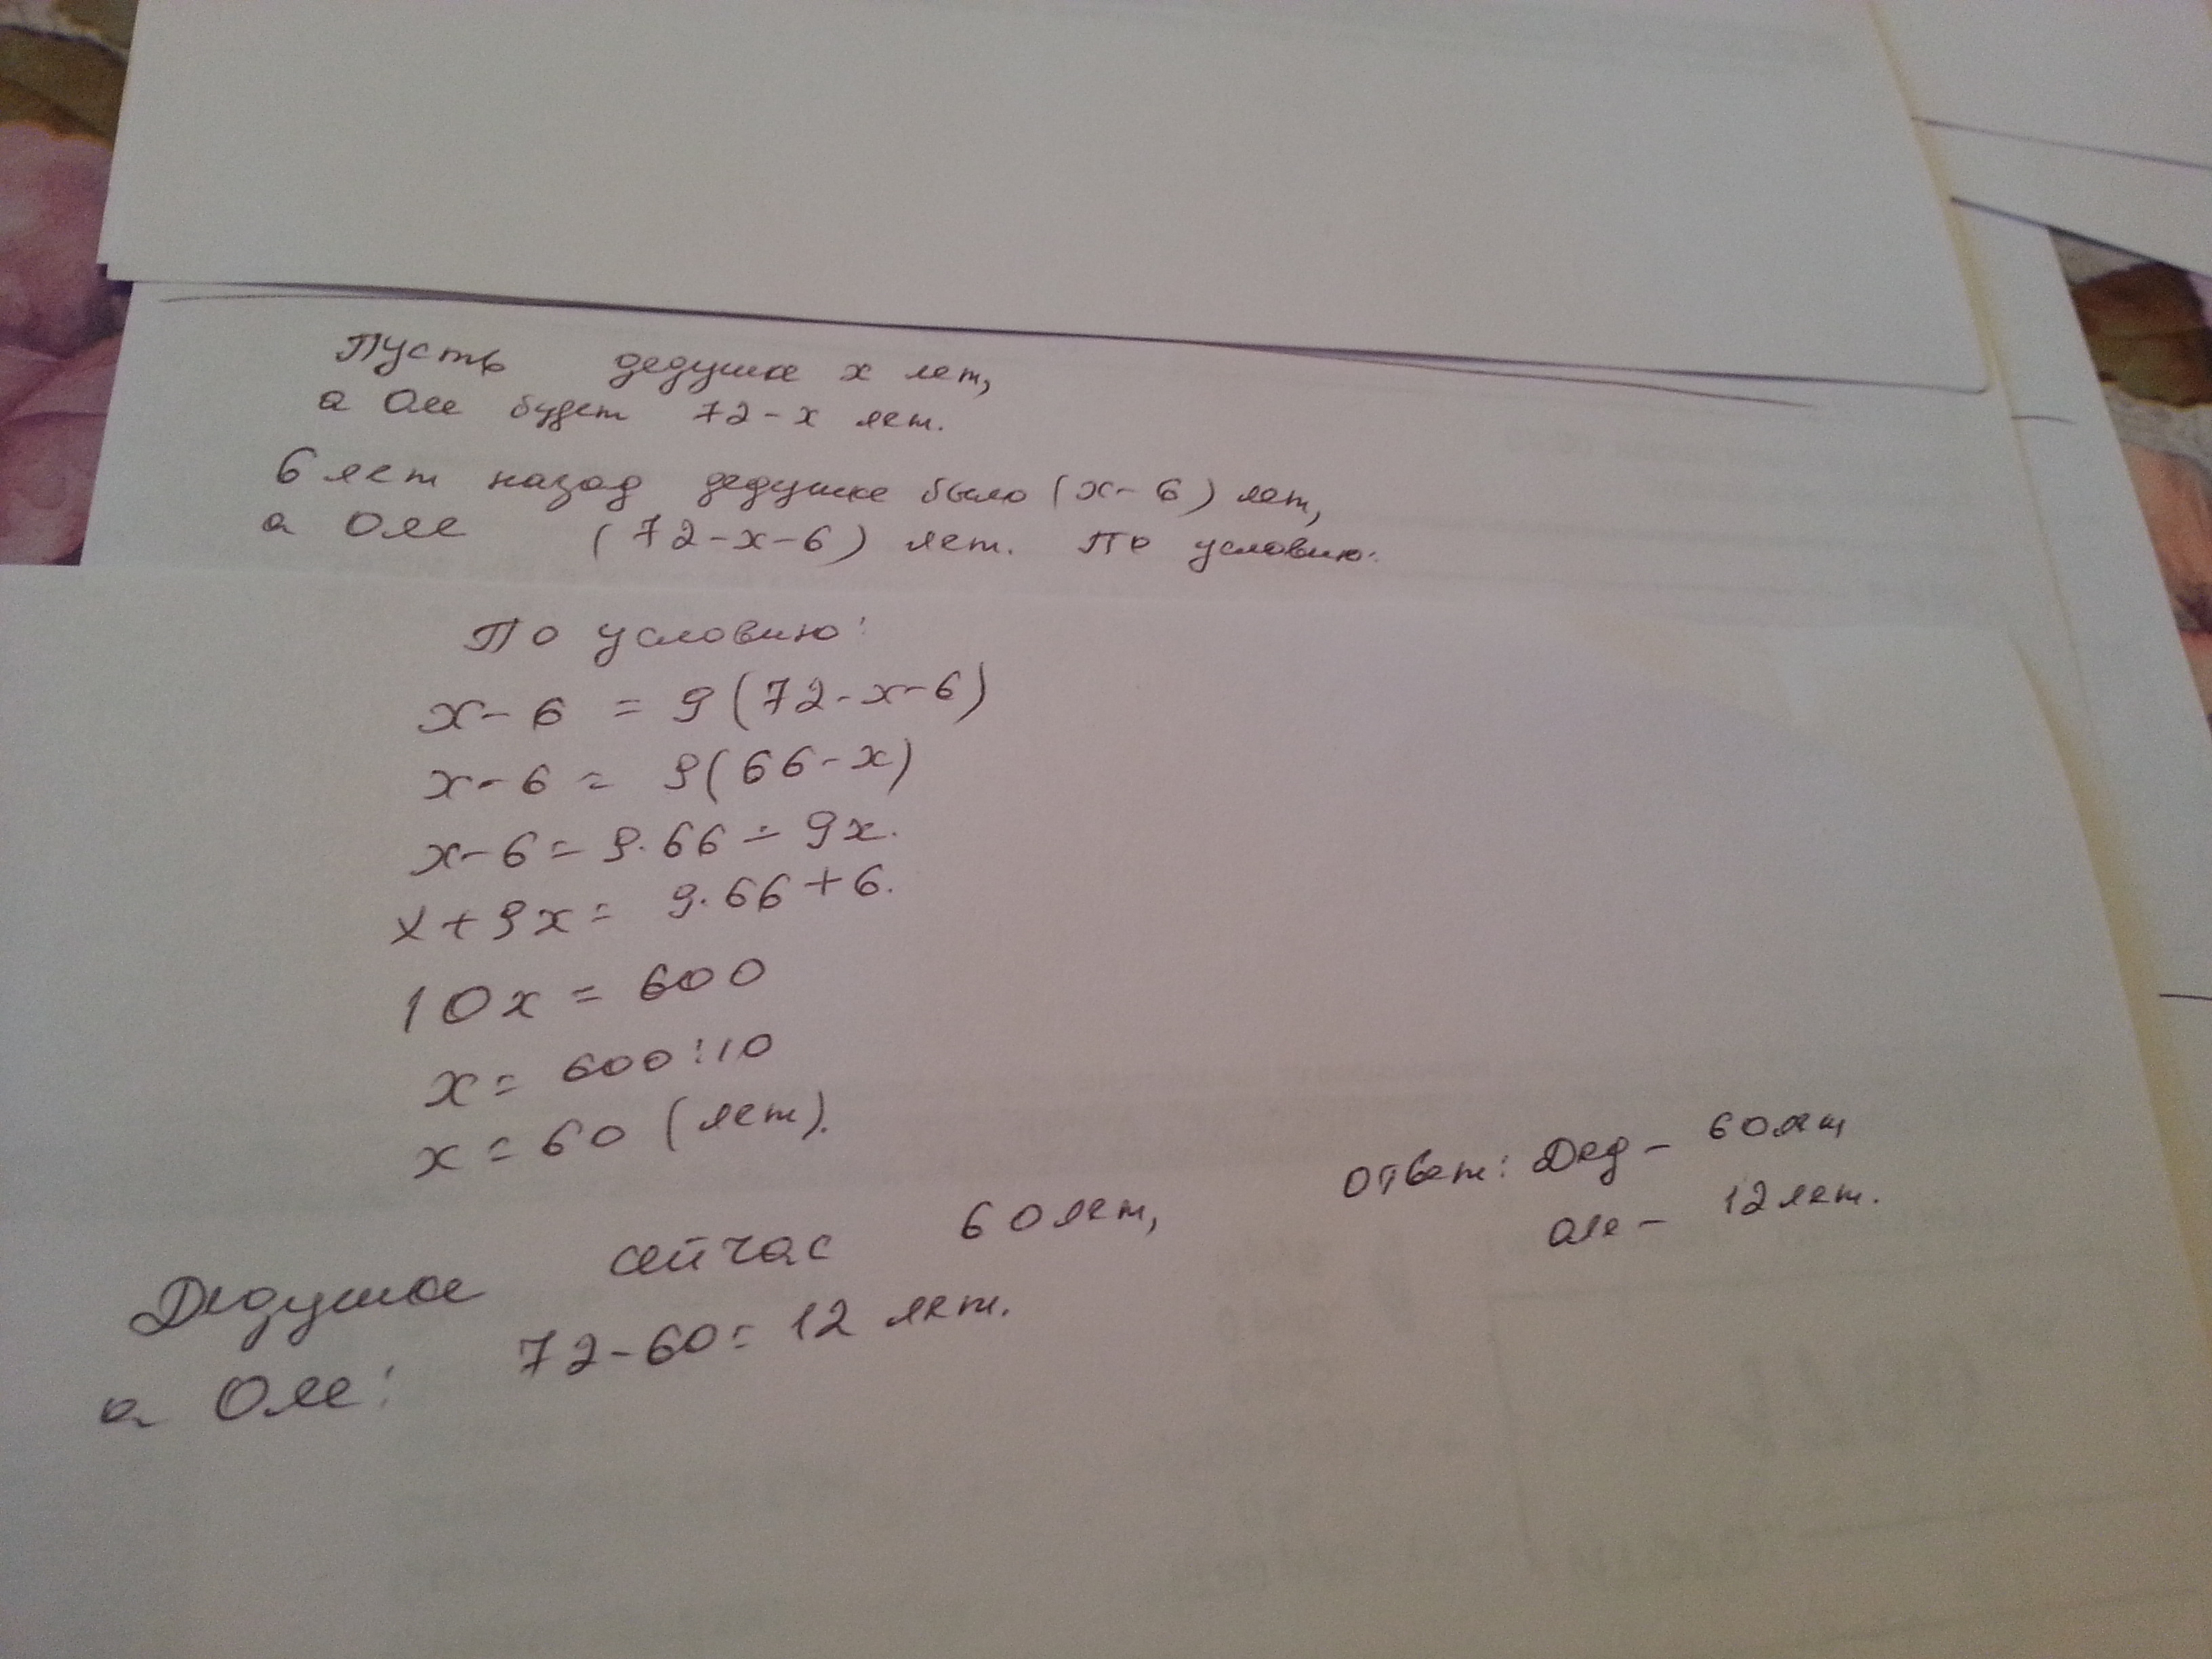 Пусть дедушке x лет,
а Оле будет 72-x лет.
6 лет назад дедушке было (x-6) лет,
а Оле (72-x-6) лет. По условию:
По условию:
x-6 = 9(72-x-6)
x-6 = 9(66-x)
x-6=9·66-9x.
x+9x= 9·66+6.
10x = 600
x= 600:10
x=60 (лет).
Дедушке сейчас 60 лет,
а Оле: 72-60=12 лет.
Ответ: Дед - 60 лет
Оле - 12 лет.